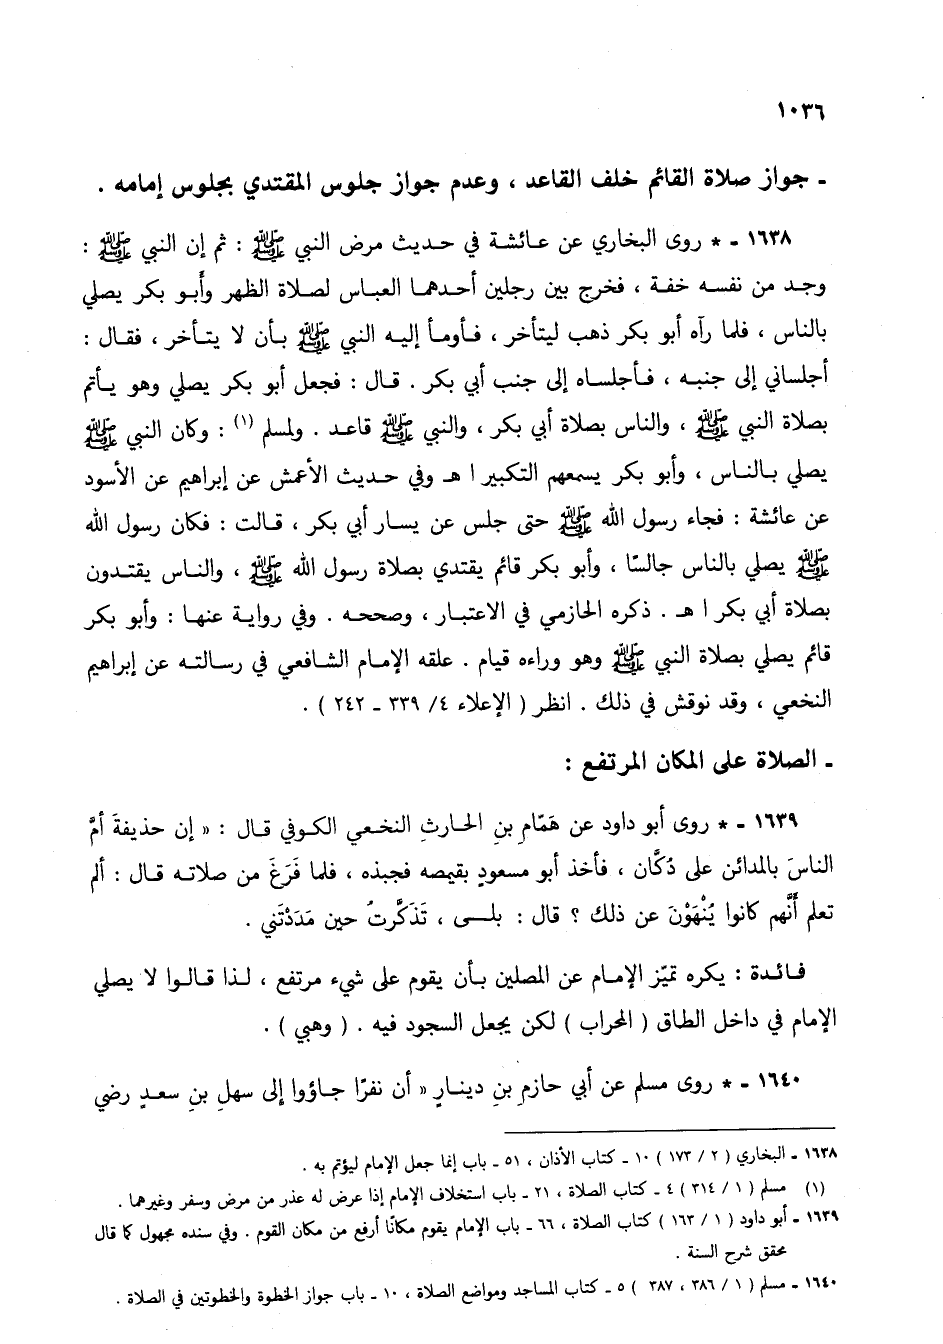 ١٠٣٦
ـ جواز صلاة القائم خلف القاعد ، وعدم جواز جلوس المقتدي بجلوس إمامه .
١٦٣٨ ـ * روى البخاري عن عائشة في حديث مرض النبي ﷺ : ثم إن النبي ﷺ :
وجد من نفسه خفة ، فخرج بين رجلين أحدهما العباس لصلاة الظهر وأَبو بكر يصلي
بالناس ، فلما رآه أبو بكر ذهب ليتأخر ، فأومأ إليه النبي ﷺ بأن لا يتأخر ، فقال :
أجلساني إلى جنبه ، فأجلساه إلى جنب أبي بكر . قال : فجعل أبو بكر يصلي وهو يأتم
بصلاة النبي ﷺ ، والناس بصلاة أبي بكر ، والنبي ﷺ قاعد . ولمسلم (١) : وكان النبي ﷺ
يصلي بالناس ، وأبو بكر يسمعهم التكبير ا هـ وفي حديث الأعمش عن إبراهيم عن الأسود
عن عائشة : فجاء رسول الله ﷺ حتى جلس عن يسار أبي بكر ، قالت : فكان رسول الله
ﷺ يصلي بالناس جالسًا ، وأبو بكر قائم يقتدي بصلاة رسول الله ﷺ ، والناس يقتدون
بصلاة أبي بكر ا هـ . ذكره الحازمي في الاعتبار ، وصححه . وفي رواية عنها : وأبو بكر
قائم يصلي بصلاة النبي ﷺ وهو وراءه قيام . علقه الإمام الشافعي في رسالته عن إبراهيم
النخعي ، وقد نوقش في ذلك . انظر ( الإعلاء ٤/ ٣٣٩ ـ ٢٤٢ ) .
ـ الصلاة على المكان المرتفع :
١٦٣٩ ـ * روى أبو داود عن هَمّامِ بنِ الحارثِ النخعي الكوفي قال : « إن حذيفةَ أمَّ
الناسَ بالمدائن على دُكَّان ، فأخذ أبو مسعودٍ بقيمصه فجبذه ، فلما فَرَغَ من صلاته قال : ألم
تعلم أَنَّهم كانوا يُنْهَوْنَ عن ذلك ؟ قال : بلى ، تَذَكَّرتُ حين مَدَدْتَني .
فائدة : يكره تميّز الإمام عن المصلين بأن يقوم على شيء مرتفع ، لذا قالوا لا يصلي
الإمام في داخل الطاق ( المحراب ) لكن يجعل السجود فيه . ( وهبي ) .
١٦٤٠ ـ * روى مسلم عن أبي حازمِ بنِ دينارٍ « أن نفرًا جاؤوا إلى سهلِ بنِ سعدٍ رضي
١٦٣٨ ـ البخاري ( ٢ / ١٧٣ ) ١٠ ـ كتاب الأذان ، ٥١ ـ باب إنما جعل الإمام ليؤتم به .
(١) مسلم ( ١ / ٣١٤ ) ٤ ـ كتاب الصلاة ، ٢١ ـ باب استخلاف الإمام إذا عرض له عذر من مرض وسفر وغيرهما .
١٦٣٩ ـ أبو داود ( ١ / ١٦٣ ) كتاب الصلاة ، ٦٦ ـ باب الإمام يقوم مكانًا أرفع من مكان القوم . وفي سنده مجهول كما قال
محقق شرح السنة .
١٦٤٠ ـ مسلم ( ١ / ٣٨٦ ، ٣٨٧ ) ٥ ـ كتاب المساجد ومواضع الصلاة ، ١٠ ـ باب جواز الخطوة والخطوتين في الصلاة .